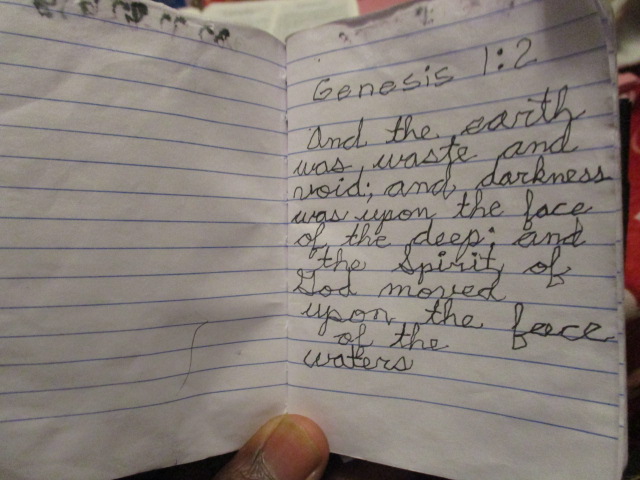 Genesis 1:2
And the earth
was waste and
void; and darkness
was upon the face
of the deep; and
the Spirit of
God moved
upon the face
of the
waters